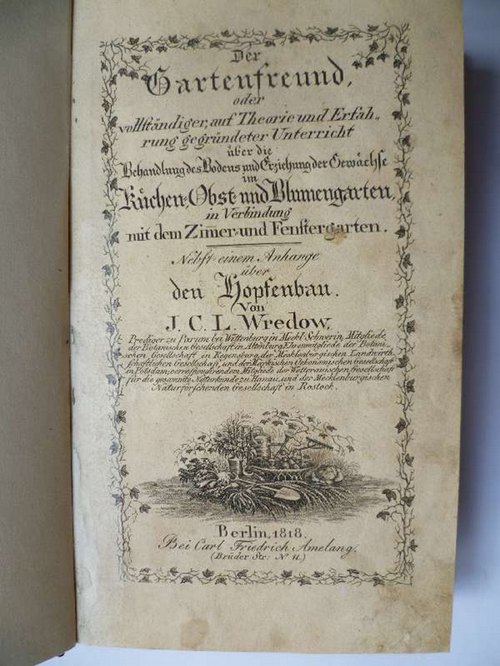 Der
Gartenfreund,
oder
vollständiger, auf Theorie und Erfah-
rung gegründeter Unterricht
über die
Behandlung des Bodens und Erziehung der Gewächse
im
Küchen-, Obst- und Blumengarten,
in Verbindung
mit dem Zimer- und Fenstergarten.
Nebst einem Anhange
über
den Hopfenbau.
Von
J. C. L. Wredow,
Prediger zu Parum bei Wittenburg in Meckl. Schwerin, Mitgliede
der Botanischen Gesellschaft in Altenburg, Ehrenmitgliede der Botani-
schen Gesellschaft in Regensburg, der Mecklenburgischen Landwirth-
schaftlichen Gesellschaft, und der Märkischen Oekonomischen Gesellschaft
in Potsdam; correspondirendem Mitgliede der Wetterauischen Gesellschaft
für die gesammte Naturkunde zu Hanau, und der Mecklenburgischen
Naturforschenden Gesellschaft in Rostock.
Berlin, 1818.
Bei Carl Friedrich Amelang.
(Brüder Str: No. 11.)